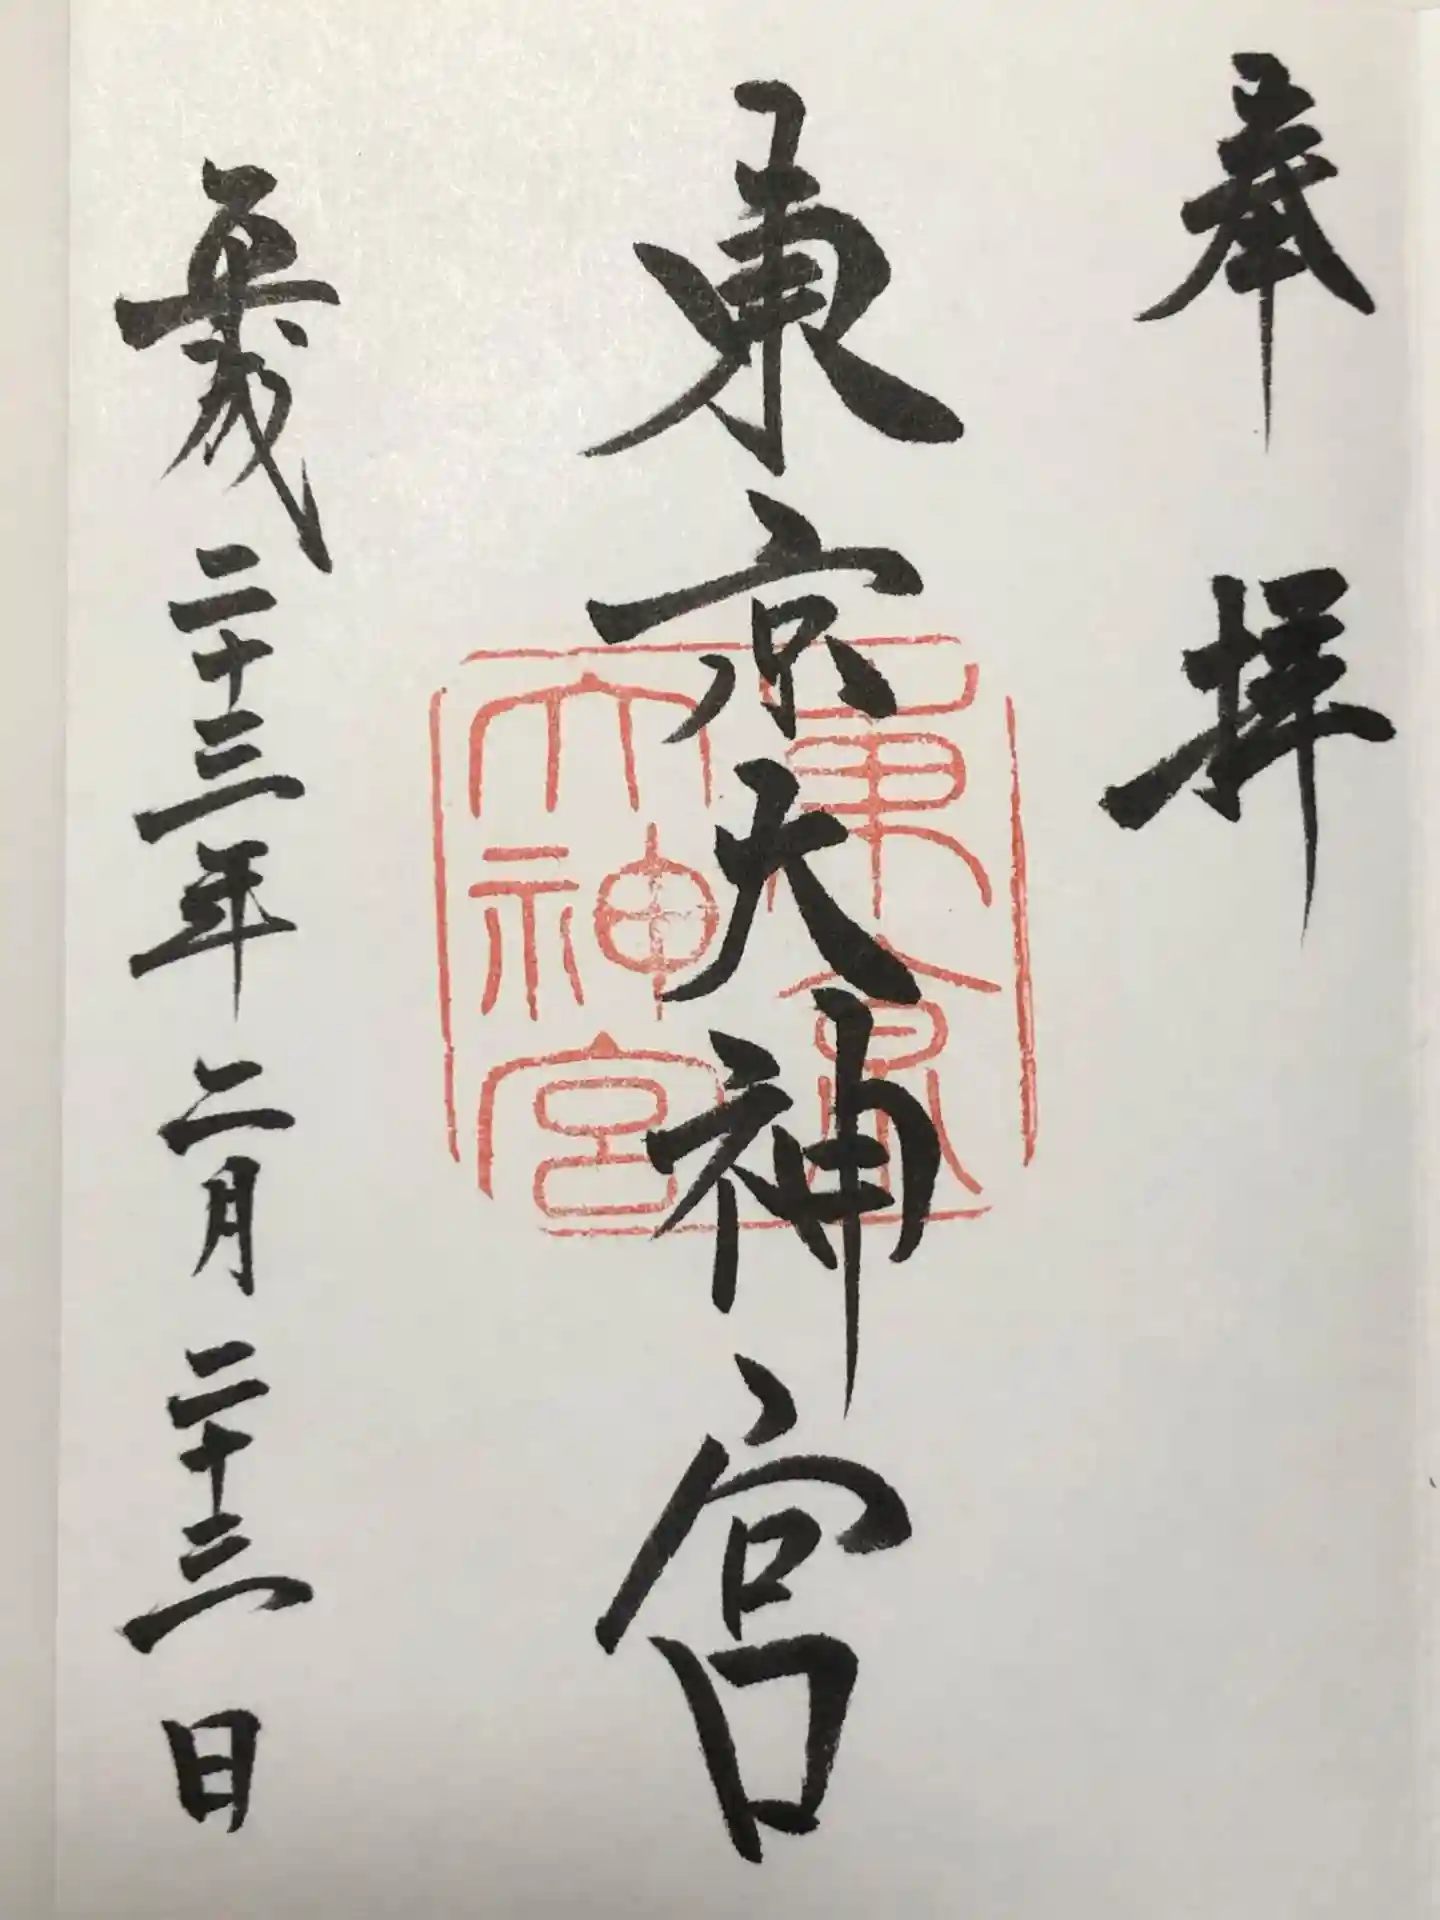 奉拝
東京大神宮
東京
大神宮
平成二十三年二月二十三日